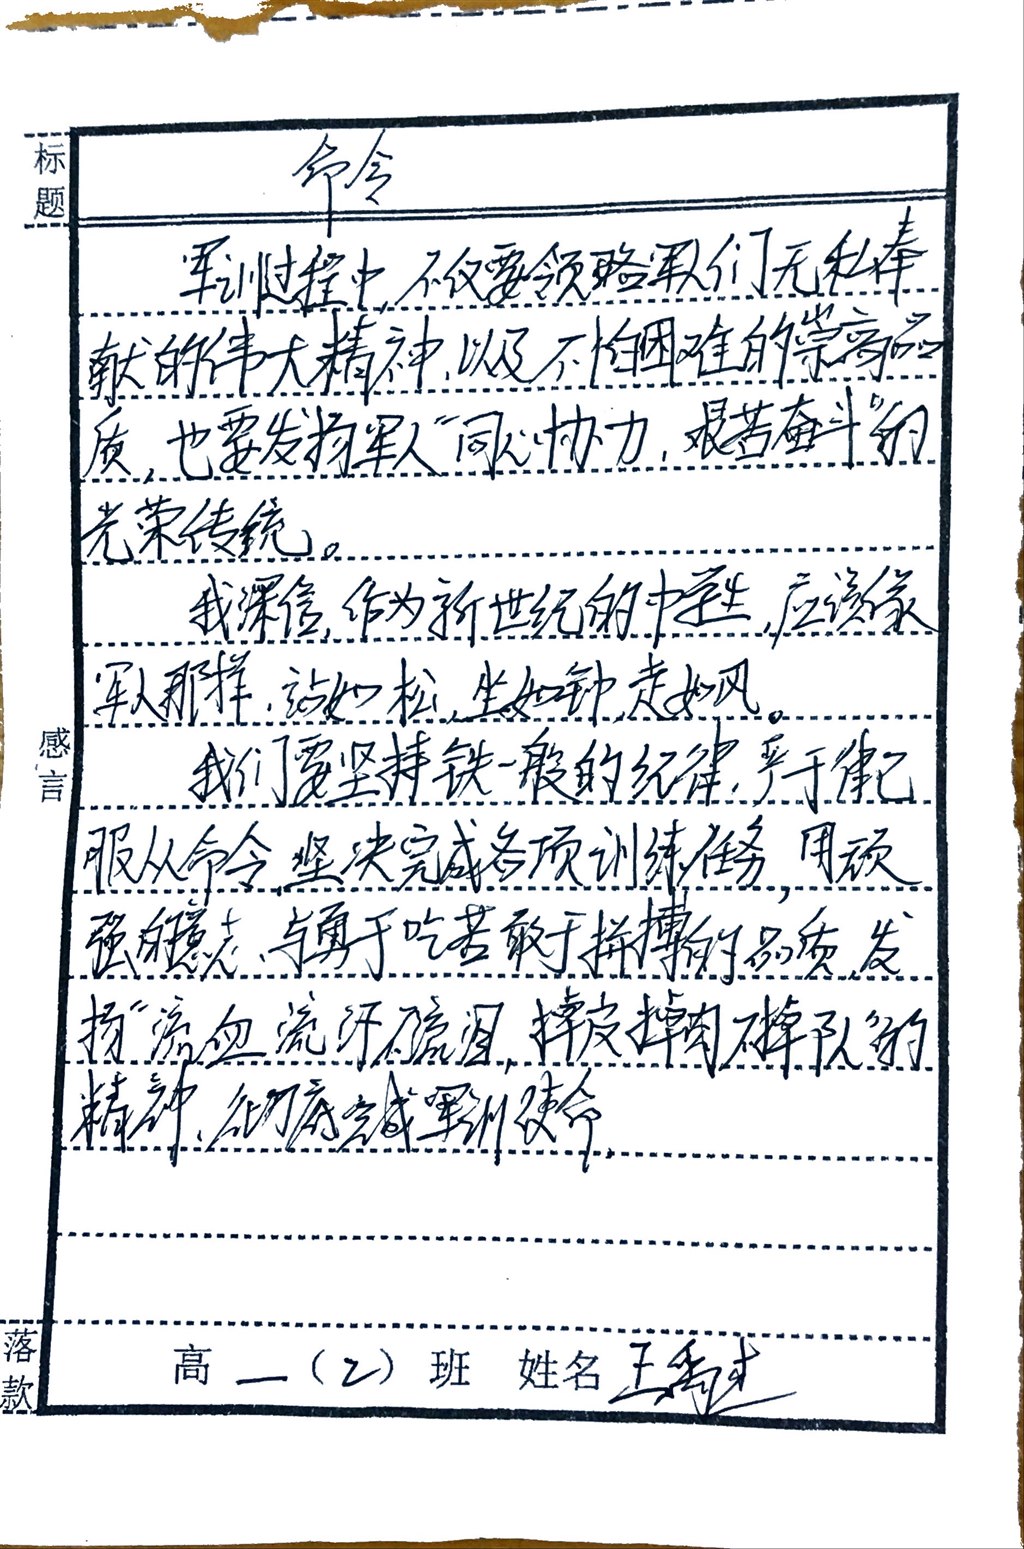 标题
命令
军训过程中，不仅要领略军人们无私奉
献的伟大精神，以及不怕困难的崇高品
质，也要发扬军人“同心协力，艰苦奋斗”的
光荣传统。
我深信，作为新世纪的中学生，应该像
军人那样，站如松，坐如钟，走如风。
感言
我们要坚持铁一般的纪律，严于律己
服从命令，坚决完成各项训练任务，用顽
强的意志、与勇于吃苦敢于拼搏的品质，发
扬“流血流汗不流泪，掉皮掉肉不掉队”的
精神，彻底完成军训使命。
落款
高一（2）班 姓名 王